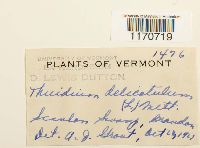 1170719
1476
PLANTS OF VERMONT
D. LEWIS DUTTON
Thuidium delicatulum
(L) Mitt.
Scanlon Swamp, Brandon
Det. A. J. Grout, Oct